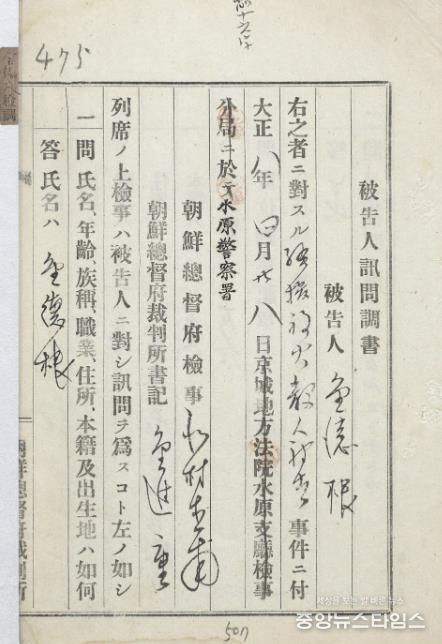 475
被告人訊問調書
被告人 金德根
右之者ニ對スル騷擾放火殺人 事件ニ付
大正八年四月廿八日京城地方法院水原支廳檢事
分局ニ於テ水原警察署
朝鮮總督府檢事
朝鮮總督府裁判所書記
列席ノ上檢事ハ被告人ニ對シ訊問ヲ爲スコト左ノ如シ
一問 氏名、年齡、族稱、職業、住所、本籍及出生地ハ如何
答 氏名ハ 金德根
朝鮮總督府裁判所
507
세상을 보는 발 빠른 뉴스
중앙뉴스타임스